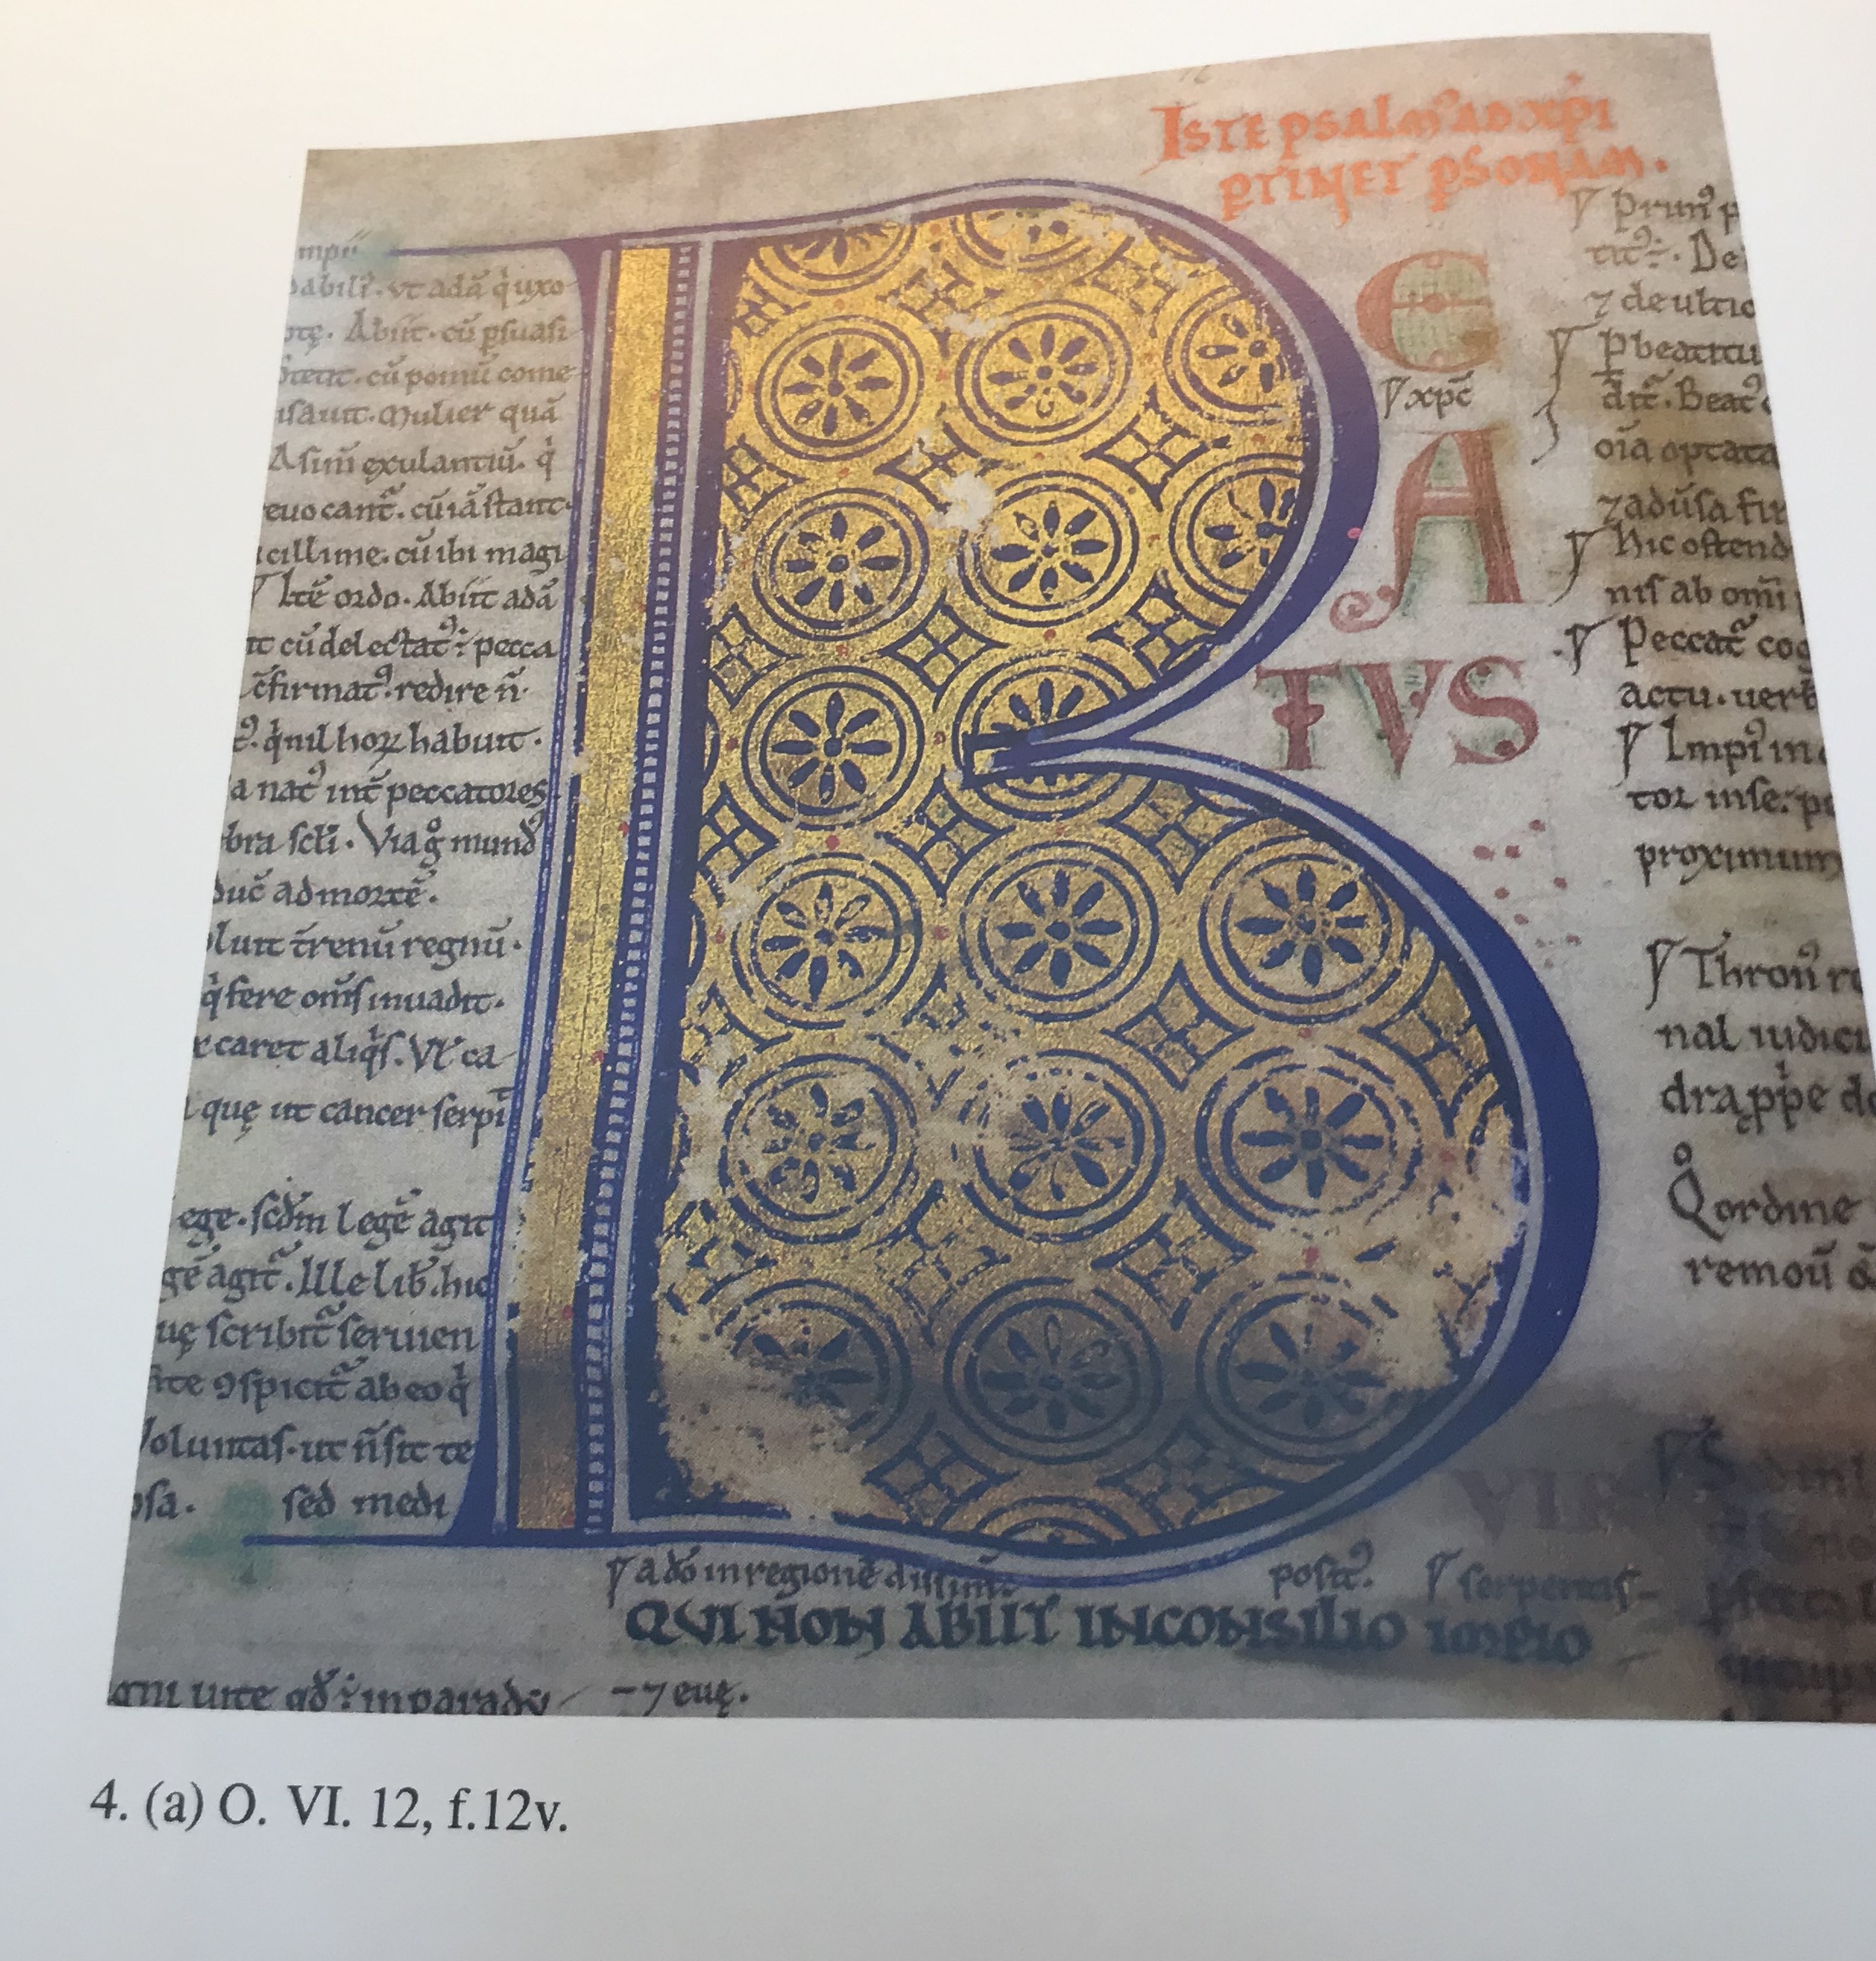 Iste psalm᾽ ad xp̄i
ꝑtinet ꝑsonam.
BEATVS
ẏ xp̄c
dabilꝭ. vt adā q̇ uxo
otę. Abiit. cū ꝑsuasi
Stetit. cū pomū come
isauit. Mulier quā
A sim̄ exulantiū. q̇
euo cant̄. cū iā stant
cillime. cū ibi magi
ẏ Itē ordo. Abiit adā
it cū delectat᾽: pecca
c̄firmat᾽. redire n̄.
᾽. q̇ nil hoꝝ habuit.
a nat᾽ int̄ peccatores
bra sc̄li. Via gͦ mund᾽
duc̄ ad mortē.
oluit t̄renū regnū.
q̇ fere om̄s inuadit.
caret aliq̇s. Vt ca
quę ut cancer serpi
ege. scd̄m legē agit
gē agit̄. Ille lib̄. hic
uę scribit̄ seruien
ꝯspicit̄ ab eo q̇
Voluntas. ut n̄ sit te
osa. sed medi
ẏ Prim᾽ p
tit᾽:. De
⁊ de ultio
ẏ ꝑ beatitu
dīt. Beat᾽
oīa optata
⁊ aduīsa fir
ẏ Hic ostend
nis ab om̄i
ẏ Peccat̄ cog
actu. uerb
ẏ Impi᾽ in
tor in se. p
proximum
ẏ Thron᾽ r
nal iudici
Qͦ ordine
remou᾽ &
ẏ adā in regionē dissim̄.
posit᾽. ẏ serpentis
QVI NON ABIIT IN CONSILIO IMPIO
uite qd̄: in parady
⁊ euę.
4. (a) O. VI. 12, f.12v.